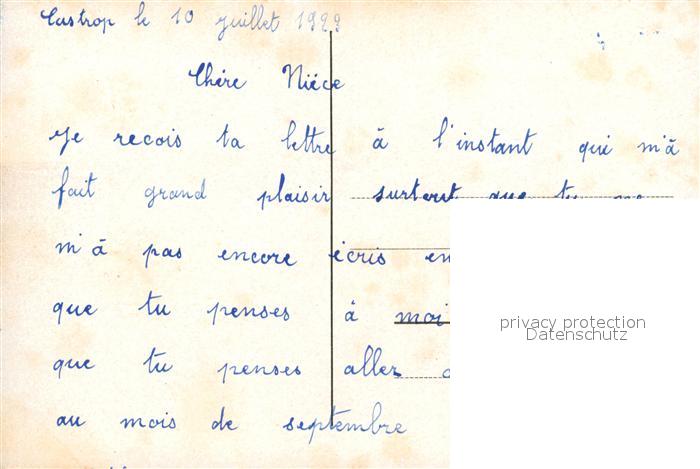 Castrop le 10 juillet 1929
Chère Nièce
Je recois ta lettre à l'instant qui m'à
fait grand plaisir surtout que tu ne
m'à pas encore écris en
que tu penses à moi
que tu penses aller
au mois de septembre
privacy protection
Datenschutz